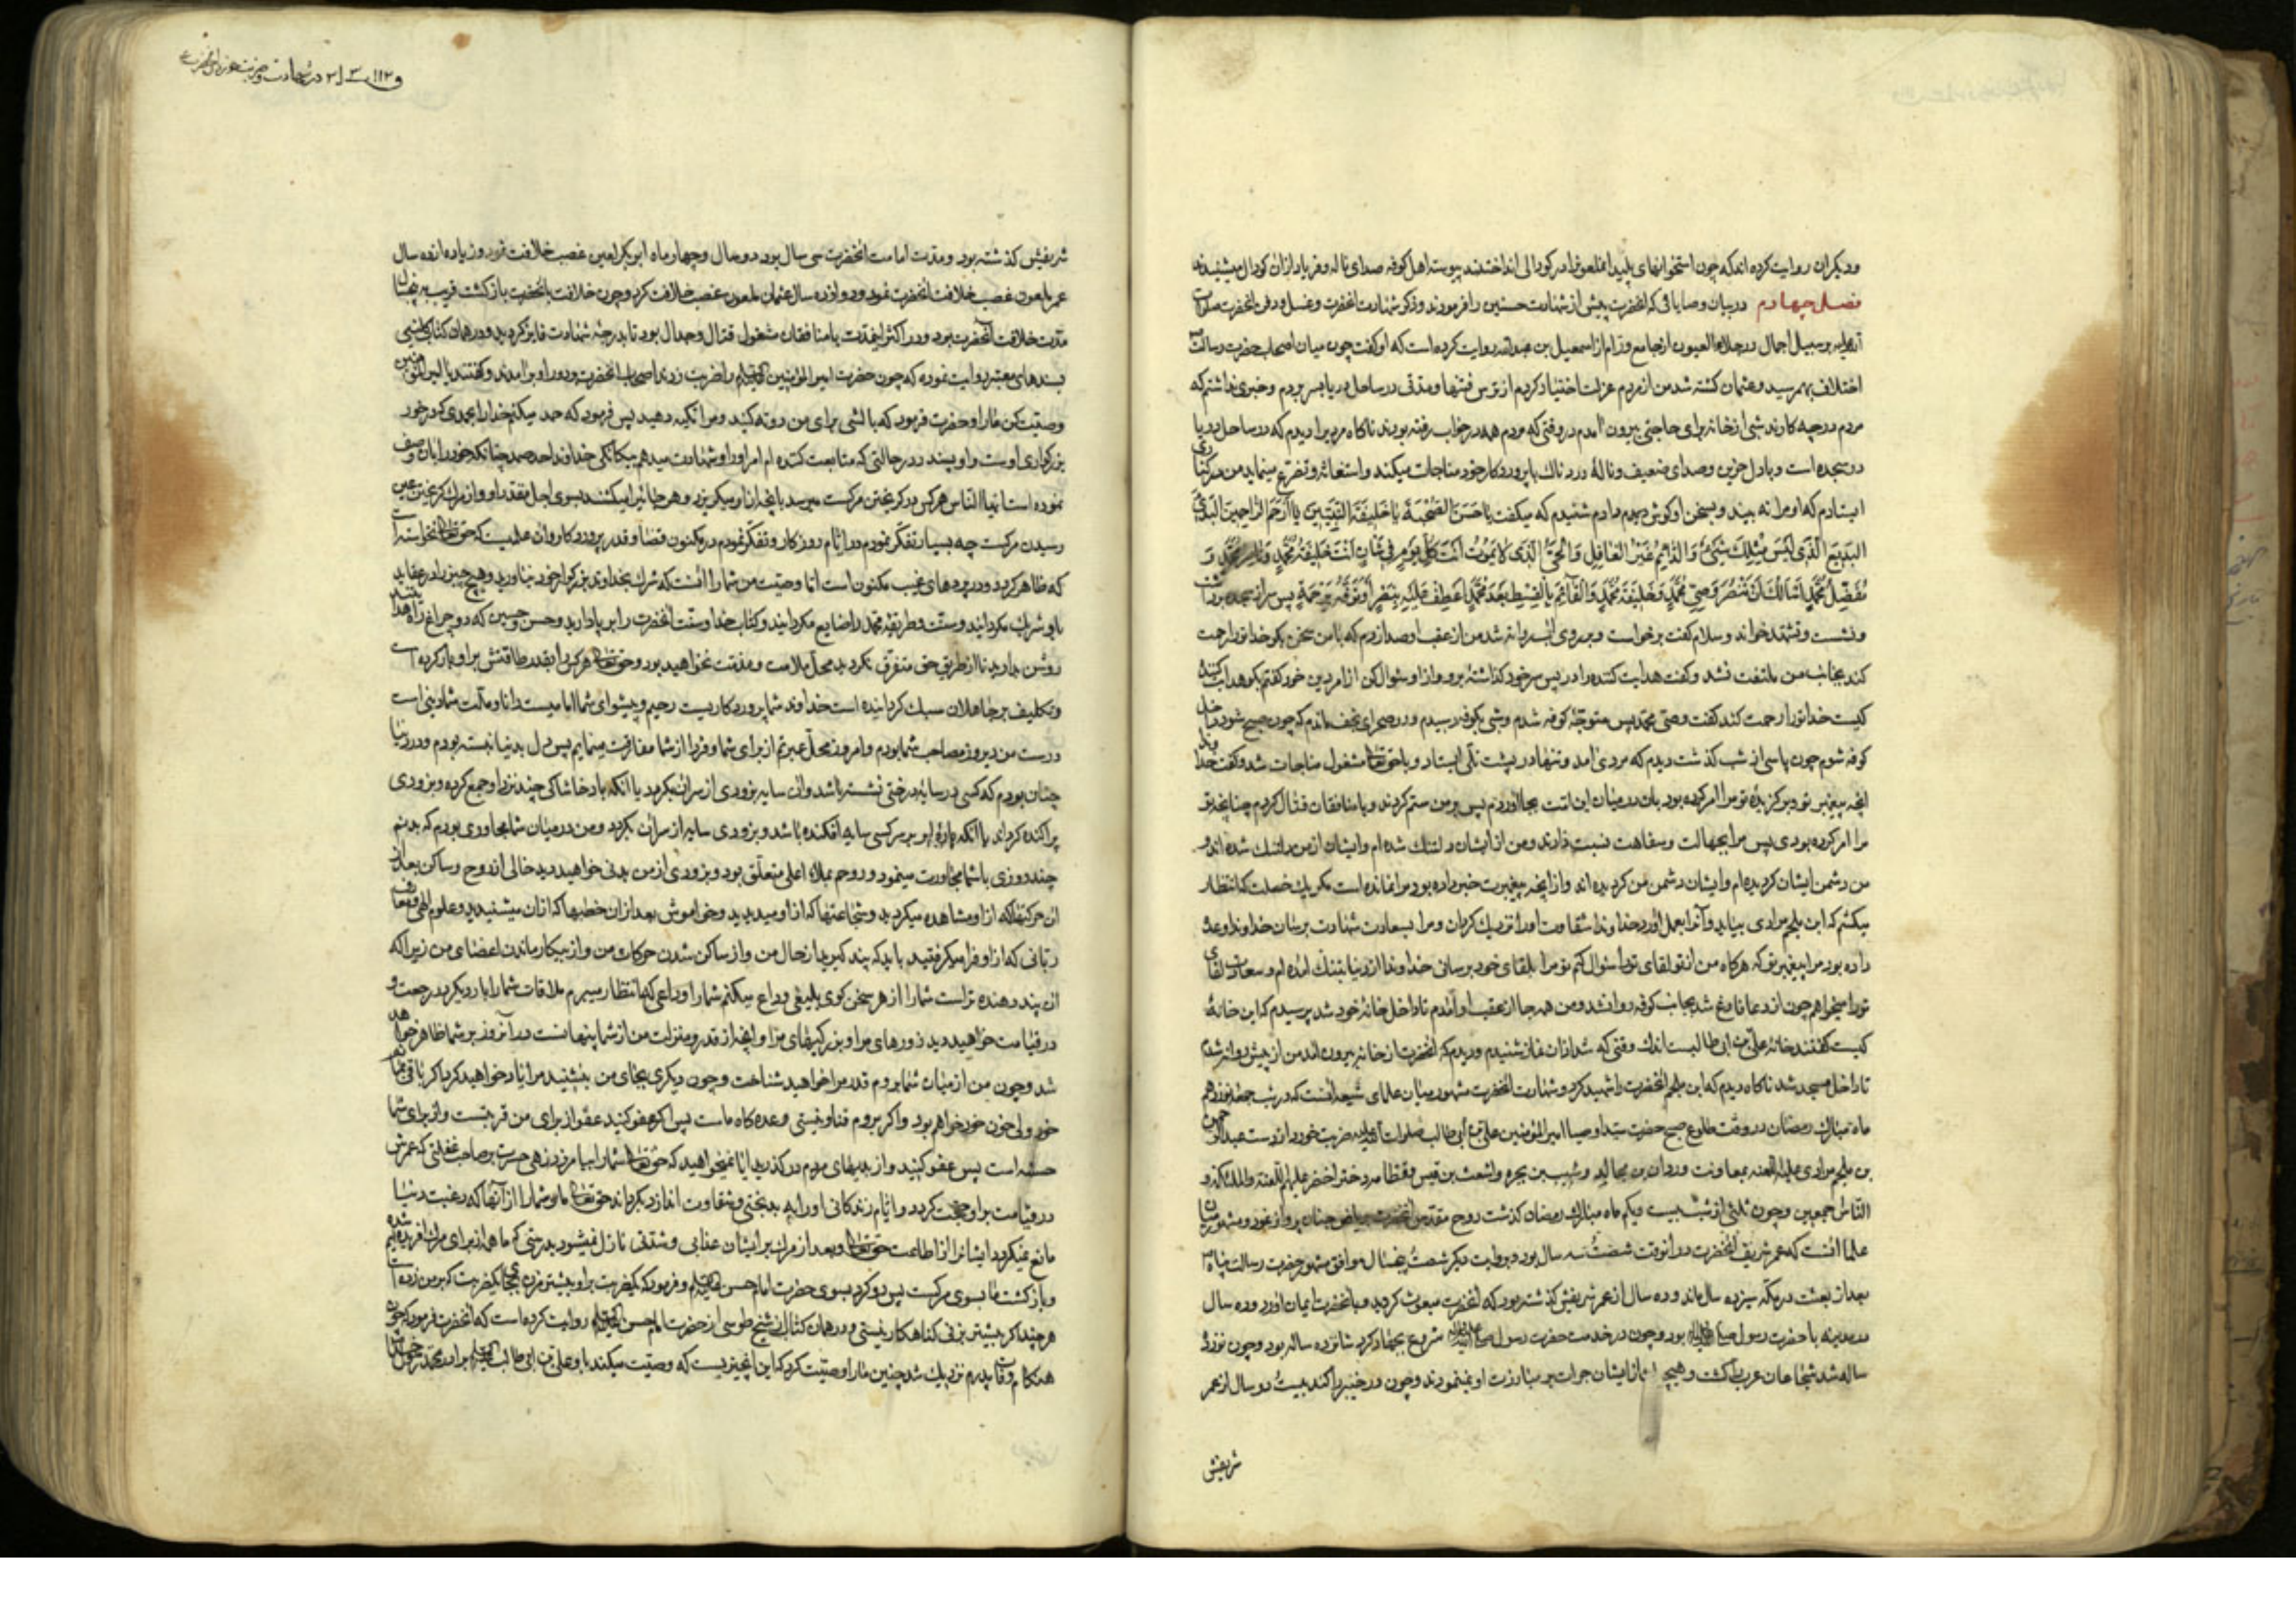 ودیکران روایت کرده اند که چون استخوانهای پلید انملعونرا در کودالی انداختند پیوسته اهل کوفه صدای ناله وفریاد ازان کودال میشنیدند
فصل چهارم در بیان وصایائی که انحضرت پیش از شهادت حسنین را فرمودند وذکر شهادت انحضرت وغسل ودفن انحضرت صلوات
الله علیه بر سبیل اجمال در جلاء العیون از جامع ورام از اسمعیل بن عبدالله روایت کرده است که او کفت چون میان اصحاب حضرت رسالت
اختلاف بهم رسید وعثمان کشته شد من از مردم عزلت اختیار کردم از ترس فتنها ومدتی در ساحل دریا بسر بردم وخبری نداشتم که
مردم در چه کارند شبی از خانه برای حاجتی بیرون امدم در وقتی که مردم همه در خواب رفته بودند ناکاه مردیرا دیدم که در ساحل دریا
در سجده است وبا دل حزین وصدای ضعیف ونالهٔ درد ناک با پروردکار خود مناجات میکند واستغاثه وتضرع مینماید من در کناری
ایستادم که او مرا نه بیند وبسخن او کوش میدادم شنیدم که میکفت یا حَسَنَ الصُّحْبَةِ یا خَلیفَةَ النَّبِیّینَ یا اَرْحَمَ الرّاحِمینَ الْبَدیُ
الْبَدیعُ الَّذی لَیْسَ مِثْلِکَ شَیْءٌ وَالدّائِمُ غَیْرُ الْغافِلِ وَالْحَیُّ الَّذی لا یَمُوتُ اَنْتَ کُلَّ یَوْمٍ فی شَانٍ اَنْتَ خَلیفَةُ مُحَمَّدٍ وَناصِرُ مُحَمَّدٍ وَ
مُفَضِّلُ مُحَمَّدٍ اَسْأَلُکَ اَنْ تَنْصُرَ وَصِیَّ مُحَمَّدٍ وَخَلیفَةَ مُحَمَّدٍ وَالْقائِمَ بِالْقِسْطِ بَعْدَ مُحَمَّدٍ اَعْطِفْ عَلَیْهِ بِنَصْرٍ اَوْ تَوَفَّهُ بِرَحْمَةٍ پس سر از سجده برداشت
ونشست وتشهد خواند وسلام کفت برخواست وبر روی اب روانه شد من از عقب او صدا زدم که با من سخن بکو خدا تو را رحمت
کند بجانب من ملتفت نشد وکفت هدایت کننده را در پس سر خود کذاشتهٔ برو واز او سئوال کن از امر دین خود کفتم بکو هدایت کننده
کیست خدا تو را رحمت کند کفت وصی محمد پس متوجه کوفه شدم وشبی بکوفه رسیدم ودر صحرای نجف ماندم که چون صبح شود داخل
کوفه شوم چون پاسی از شب کذشت دیدم که مردی امد وتنها در پشت تلی ایستاد وبا حقتعالی مشغول مناجات شد وکفت خداوندا
انچه پیغمبر تو وبرکزیدهٔ تو مرا امر کرده بود بان در میان این امت بجا اوردم پس بر من ستم کردند وبا منافقان قتال کردم چنانچه تو
مرا امر کرده بودی پس مرا بجهالت وسفاهت نسبت دادند ومن از ایشان دلتنک شده ام وایشان از من دلتنک شده اند و
من دشمن ایشان کردیده ام وایشان دشمن من کردیده اند واز انچه پیغمبرت خبر داده بود مرا نمانده است مکر یک خصلت که انتظار
میکشم که ابن ملجم مرادی بیاید وآنرا بعمل اورد خداوندا شقاوت اورا نزدیک کردان ومرا بسعادت شهادت برسان خداوندا وعده
داده بود مرا پیغمبر تو که هرکاه من از تو لقای تو را سئوال کنم تو مرا بلقای خود برسانی خداوندا از دنیا بتنک امده ام وسعادت لقای
تو را میخواهم چون از دعا فارغ شد بجانب کوفه روانشد ومن همه جا از عقب او آمدم تا داخل خانهٔ خود شد پرسیدم که این خانهٔ
کیست کفتند خانهٔ علی بن ابی طالبست اندک وقتی که شد اذان نماز شنیدم ودیدم که انحضرت از خانه بیرون امد من از پیش روانه شدم
تا داخل مسجد شد ناکاه دیدم که ابن ملجم انحضرت را شهید کرد وشهادت انحضرت مشهور میان علمای شیعه انست که در شب جمعه نوزدهم
ماه مبارک رمضان در وقت طلوع صبح حضرت سید اوصیا امیر المؤمنین علی بن أبی طالب صلوات الله علیه ضربت خورد از دست عبدالرحمن
بن ملجم مرادی علیه اللعنه بمعاونت وردان بن مجالد وشبیب بن بجره واشعث بن قیس وقطامه دختر اخضر علیهم اللعنة والملئکة و
الناس اجمعین وچون ثلثی از شب بیست ویکم ماه مبارک رمضان کذشت روح مقدس انحضرت بریاض جنان پرواز نمود ومشهور میان
علما انست که عمر شریف انحضرت در انوقت شصت وسه سال بود وبروایت دیکر شصت وپنجسال موافق مشهور حضرت رسالت پناه
بعد از بعثت در مکه سیزده سال ماند وده سال از عمر شریفش کذشته بود که انحضرت مبعوث کردید وبانحضرت ایمان اورد وده سال
در مدینه با حضرت رسول بود وچون در خدمت حضرت رسول شروع بجهاد کرد شانزده ساله بود وچون نوزده
ساله شد شجاعان عرب را کشت وهیچ از ایشان جرات بر مبارزت او نمینمودند وچون در خیبر را کند بیست ودو سال از عمر
شریفش
شریفش کذشته بود ومدت امامت انحضرت سی سال بود دو سال وچهار ماه ابوبکر لعین غصب خلافت نمود وزیاده از ده سال
عمر ملعون غصب خلافت انحضرت نمود ودوازده سال عثمان ملعون غصب خلافت کرد وچون خلافت بانحضرت بازکشت قریب بپنجسال
مدت خلافت انحضرت بود ودر اکثر اینمدت با منافقان مشغول قتال وجدال بود تا بدرجهٔ شهادت فایز کردید ودر همان کتاب
بسندهای معتبر روایت نموده که چون حضرت امیر المؤمنین را ضربت زدند اصحاب انحضرت بدور او بر امدند وکفتند یا امیر المؤمنین
وصیت کن مارا وحضرت فرمود که بالشی برای من دوته کنید ومرا تکیه دهید پس فرمود که حمد میکنم خدارا بحمدی که در خور
بزرکواری اوست واو پسندد در حالتی که متابعت کننده ام امر اورا وشهادت میدهم بیکانکی خداوند احد صمد چنانکه خود را بان وصف
نموده است ایها الناس هرکس در کریختن مرکست میرسد بانچه از ان میکریزد وهر جانی را میکشند بسوی اجل مقدر او واز مرک کریختن عین
رسیدن مرکست چه بسیار تفکر نمودم در ایام روزکار وتفکر نمودم در مکنون قضا وقدر پروردکار وان علمیست که حقتعالی نخواسته است
که ظاهر کردد ودر پردهای غیب مکنون است اما وصیت من شمارا انست که شرک بخداوند بزرکوار خود نیاورید وهیچ چیز را در
باو شریک مکردانید وسنت وطریقهٔ محمد را ضایع مکردانید وکتاب خدا وسنت انحضرت را بر پا دارید وحسن وحسین که دو چراغ راه هدایتند
روشن بدارید تا از طریق حق متفرق نکردید محل ملامت ومذمت نخواهید بود وحقتعالی هرکس را بقدر طاقتش بر او بار کرده است
وتکلیف بر جاهلان سبک کردانیده است خداوند شما پروردکاریست رحیم وپیشوای شما امامیست دانا وملت شما دینی است
درست من دیروز مصاحب شما بودم وامروز محل عبرتم از برای شما وفردا از شما مفارقت مینمایم پس دل بدنیا نبسته بودم ودر دنیا
چنان بودم که کسی در سایهٔ درختی نشسته باشد وان سایه بزودی از سر ان بکردد یا انکه باد خاشاکی چند نزد او جمع کرده وبزودی
پراکنده کرداند یا انکه پارهٔ ابر بر سر کسی سایه افکنده باشد وبزودی سایه از سر ان بکردد ومن در میان شما مجاوری بودم که بدنم
چند روزی با شما مجاورت مینمود وروحم بملاء اعلی متعلق بود وبزودی از من بدنی خواهید دید خالی از روح وساکن بعد از
ان حرکتها که از او مشاهده میکردید وشجاعتها که از او میدیدید وخاموش بعد از ان خطبها که از ان میشنیدید وعلوم الهی ومعارف
ربانی که از او فرا میکرفتید باید که پند کیرید از حال من واز ساکن شدن حرکات من واز بیکار ماندن اعضای من زیرا که
ان پند دهنده تر است شمارا از هر سخن کوی بلیغی وداع میکنم شمارا وداعی که انتظار میبرم ملاقات شمارا بار دیکر در رجعت و
در قیامت خواهید دید روزهای مرا وبزرکیهای مرا وانچه از قدر ومنزلت من از شما پنهانست در آنروز بر شما ظاهر خواهد
شد وچون من از میان شما بروم قدر مرا خواهید شناخت وچون دیکری بجای من بنشیند مرا یاد خواهید کرد اکر باقی بمانم
خود ولی خون خود خواهم بود واکر بروم فنا ونیستی وعده کاه ماست پس اکر عفو کنید عفو از برای من قربتست واز برای شما
حسنه است پس عفو کنید واز بدیهای مردم درکذرید ایا نمیخواهید که حقتعالی شمارا بیامرزد زهی حسرت بر صاحب غفلتی که عمرش
در قیامت بر او حجت کردد وایام زندکانی اورا به بدبختی وشقاوت اندازد بکرداند حقتعالی ما وشمارا از آنها که رغبت دنیا
مانع نمیکردد ایشانرا از اطاعت حقتعالی وبعد از مرک بر ایشان عذابی ومشقتی نازل نمیشود بدرستی که ما همه از برای مرک افریده شده‌ایم
وبازکشت ما بسوی مرکست پس رو کرد بسوی حضرت امام حسن وفرمود که یکضربت بر او بیشتر مزن بجای یکضربت که بر من زده است
هرچند اکر بیشتر بزنی کناهکار نیستی ودر همان کتاب از شیخ طوسی از حضرت امام حسن روایت کرده است که انحضرت فرمود که چون
هنکام وفات پدرم نزدیک شد چنین مارا وصیت کرد که این انچیزیست که وصیت میکند باو علی بن ابی طالب برادر محمد